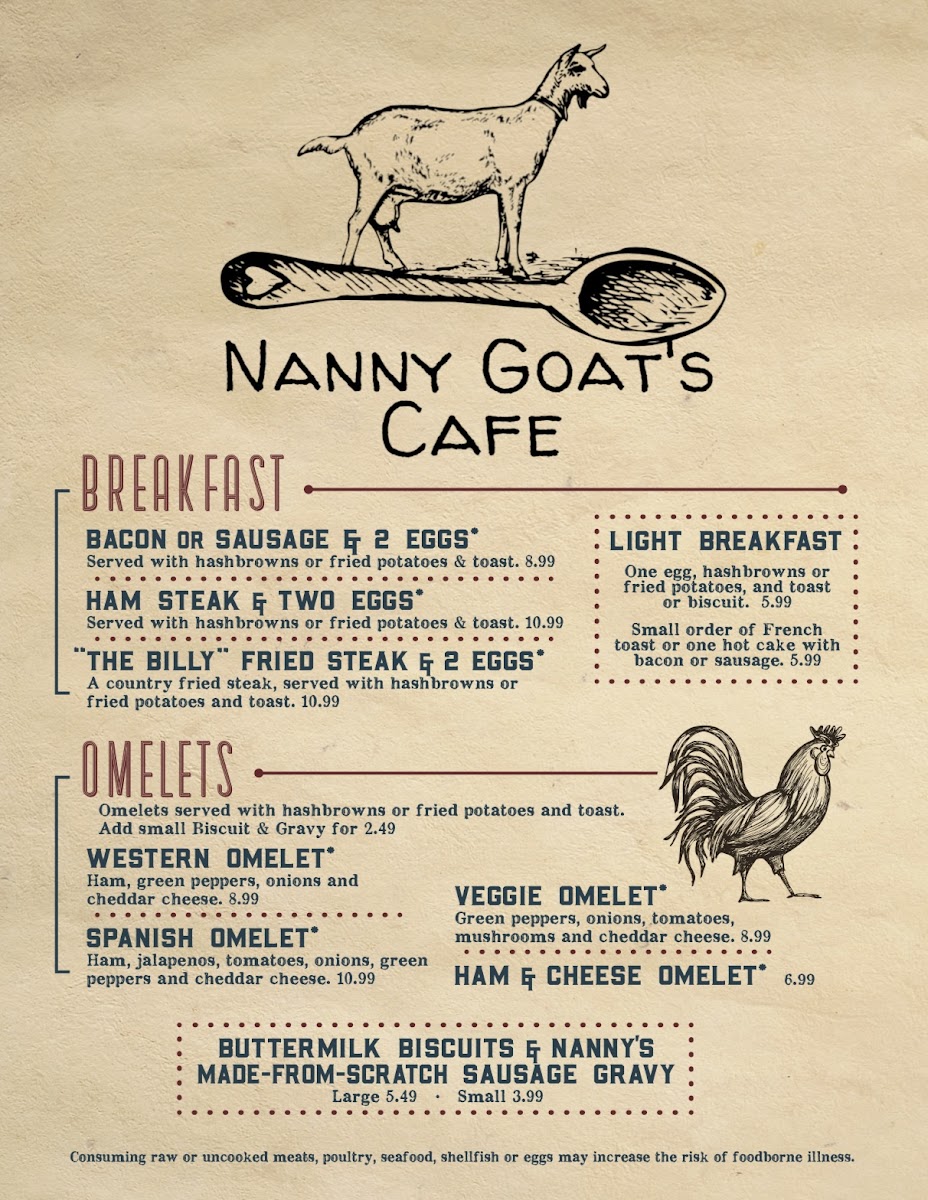 Nanny Goat's
Cafe
BREAKFAST
BACON OR SAUSAGE & 2 EGGS*
Served with hashbrowns or fried potatoes & toast. 8.99
HAM STEAK & TWO EGGS*
Served with hashbrowns or fried potatoes & toast. 10.99
"THE BILLY" FRIED STEAK & 2 EGGS*
A country fried steak, served with hashbrowns or
fried potatoes and toast. 10.99
LIGHT BREAKFAST
One egg, hashbrowns or
fried potatoes, and toast
or biscuit. 5.99
Small order of French
toast or one hot cake with
bacon or sausage. 5.99
OMELETS
Omelets served with hashbrowns or fried potatoes and toast.
Add small Biscuit & Gravy for 2.49
WESTERN OMELET*
Ham, green peppers, onions and
cheddar cheese. 8.99
SPANISH OMELET*
Ham, jalapenos, tomatoes, onions, green
peppers and cheddar cheese. 10.99
VEGGIE OMELET*
Green peppers, onions, tomatoes,
mushrooms and cheddar cheese. 8.99
HAM & CHEESE OMELET* 6.99
BUTTERMILK BISCUITS & NANNY'S
MADE-FROM-SCRATCH SAUSAGE GRAVY
Large 5.49 · Small 3.99
Consuming raw or uncooked meats, poultry, seafood, shellfish or eggs may increase the risk of foodborne illness.